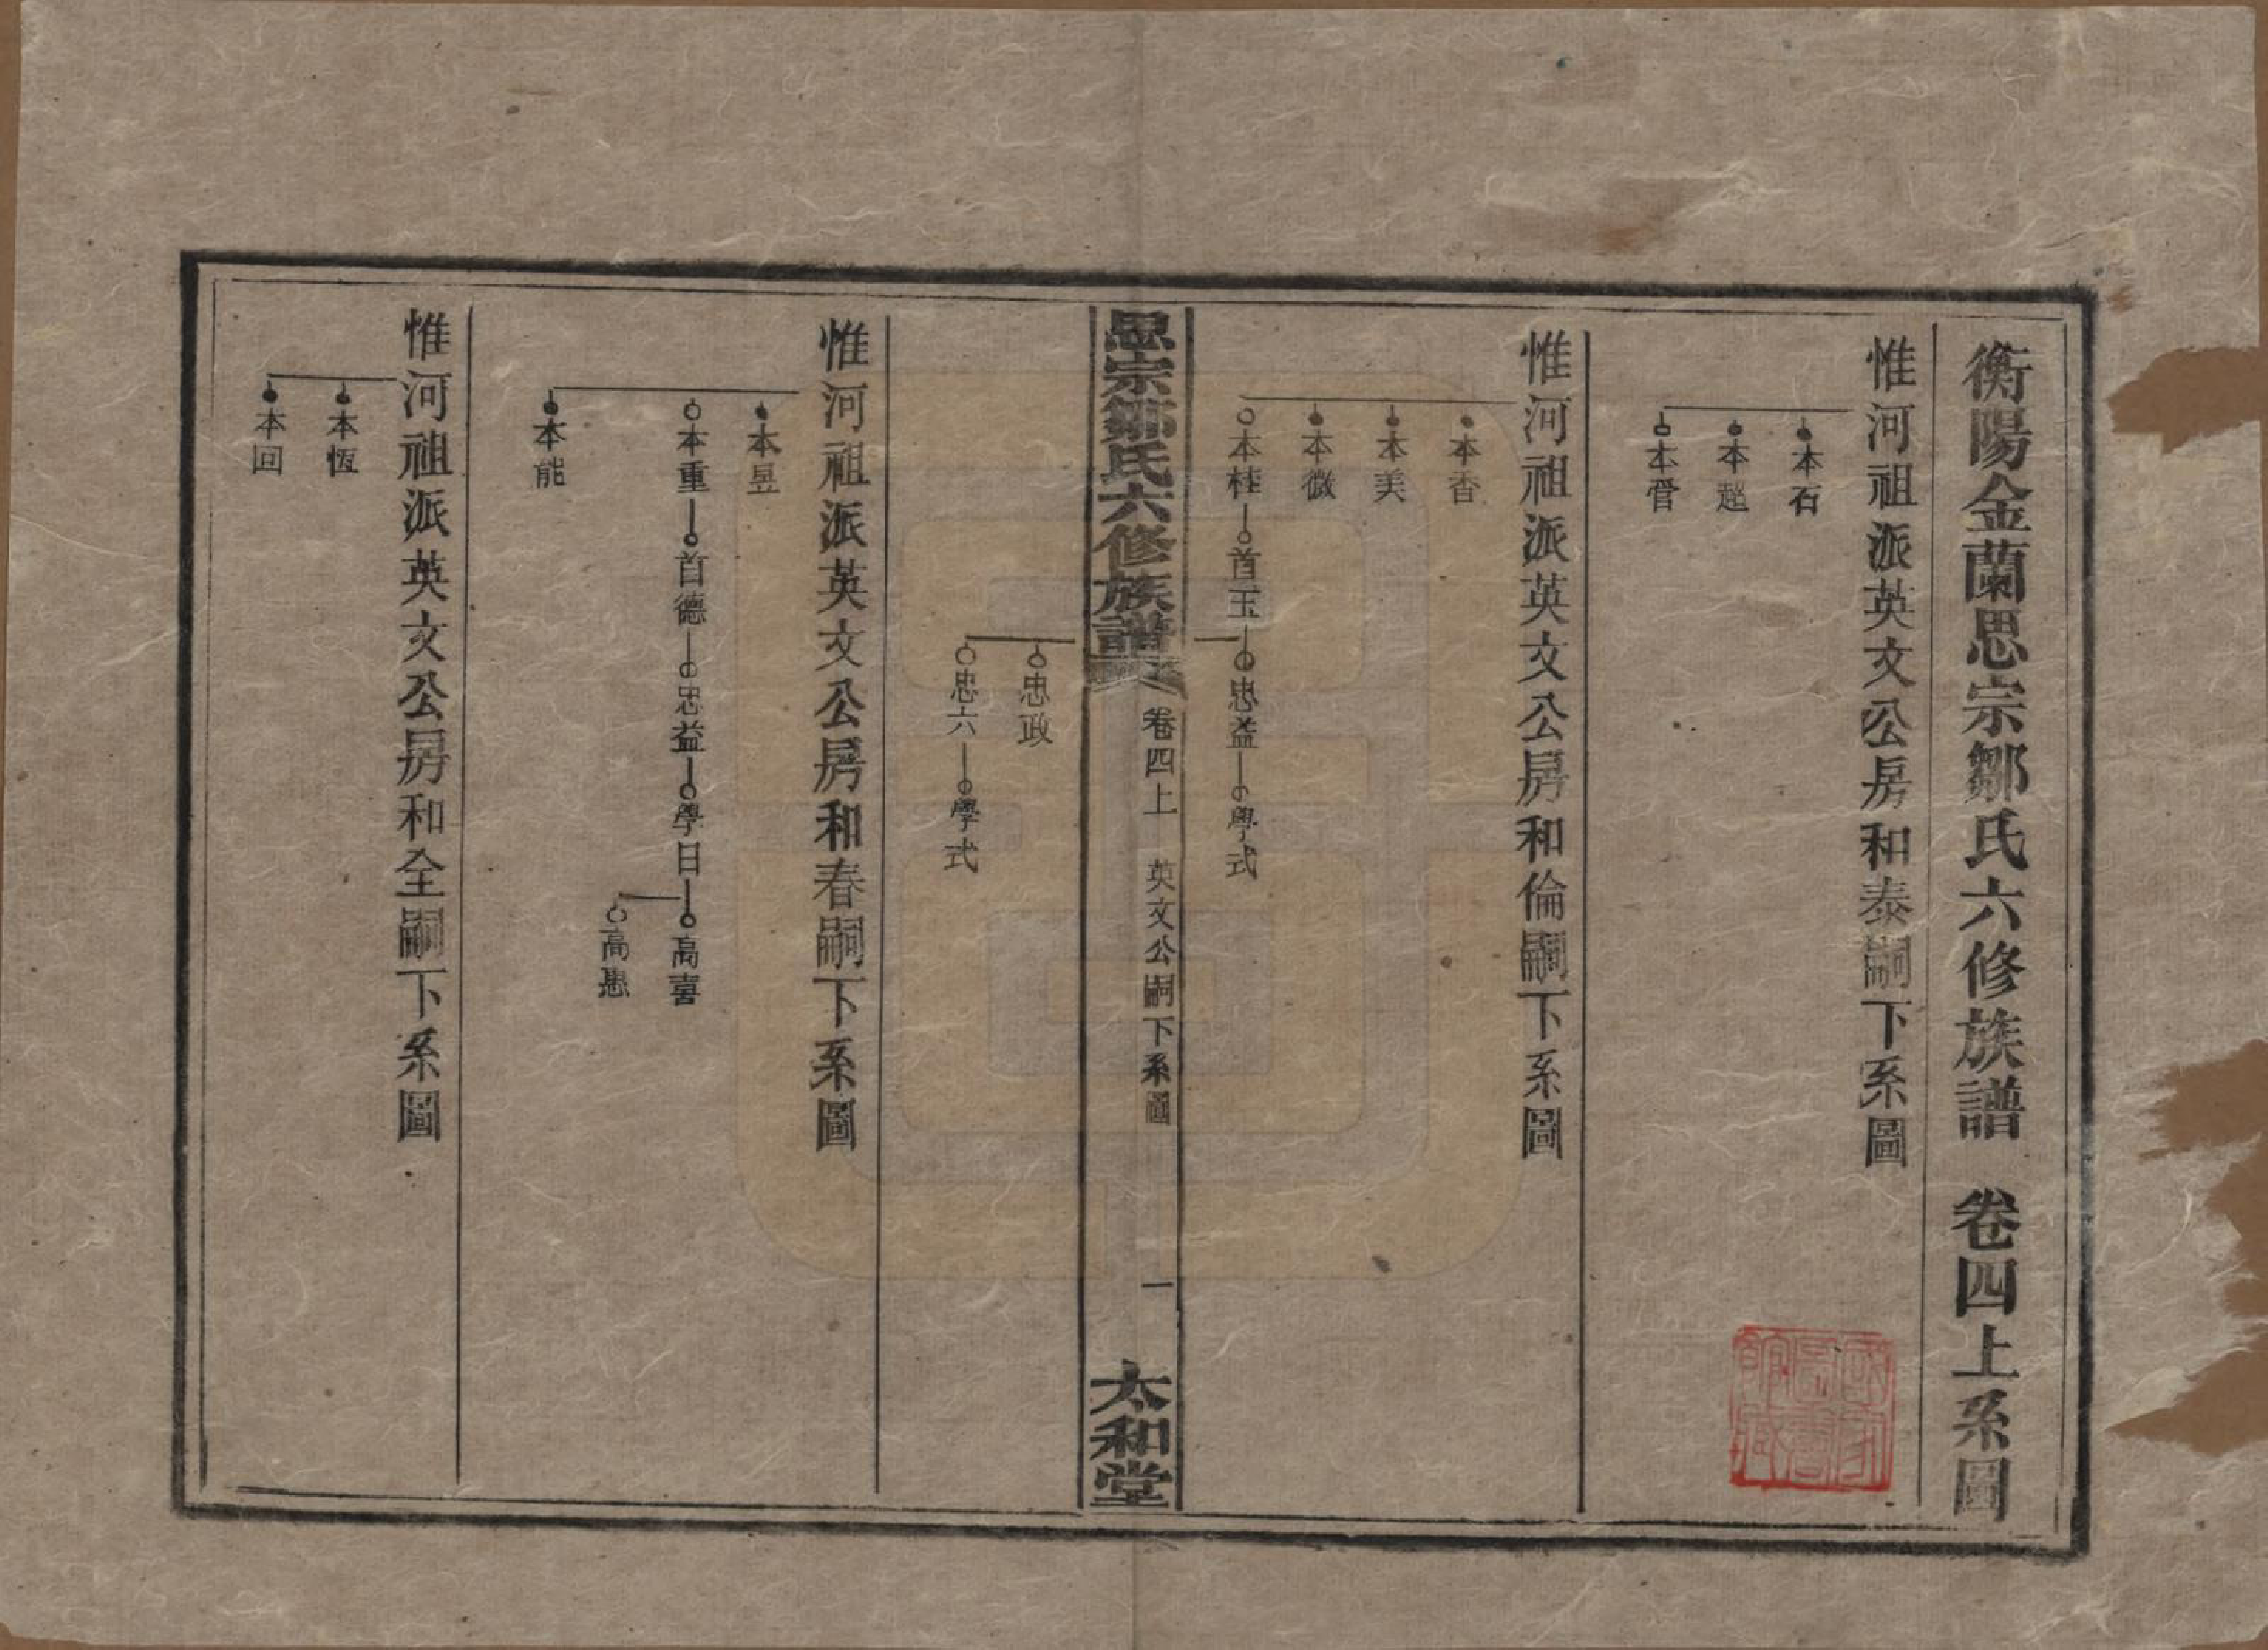 衡陽金蘭思宗鄒氏六修族譜 卷四上系圖
惟河祖派英文公房和泰嗣下系圖
本石
本超
本晉
惟河祖派英文公房和倫嗣下系圖
本香
本美
本微
本桂 首玉 忠益 學式
思宗鄒氏六修族譜 卷四上 英文公嗣下系圖 一 太和堂
忠政
忠六 學式
惟河祖派英文公房和春嗣下系圖
本昱
本重 首德 忠益 學日 高喜
高愚
本能
惟河祖派英文公房和全嗣下系圖
本恆
本回
國家圖書館藏